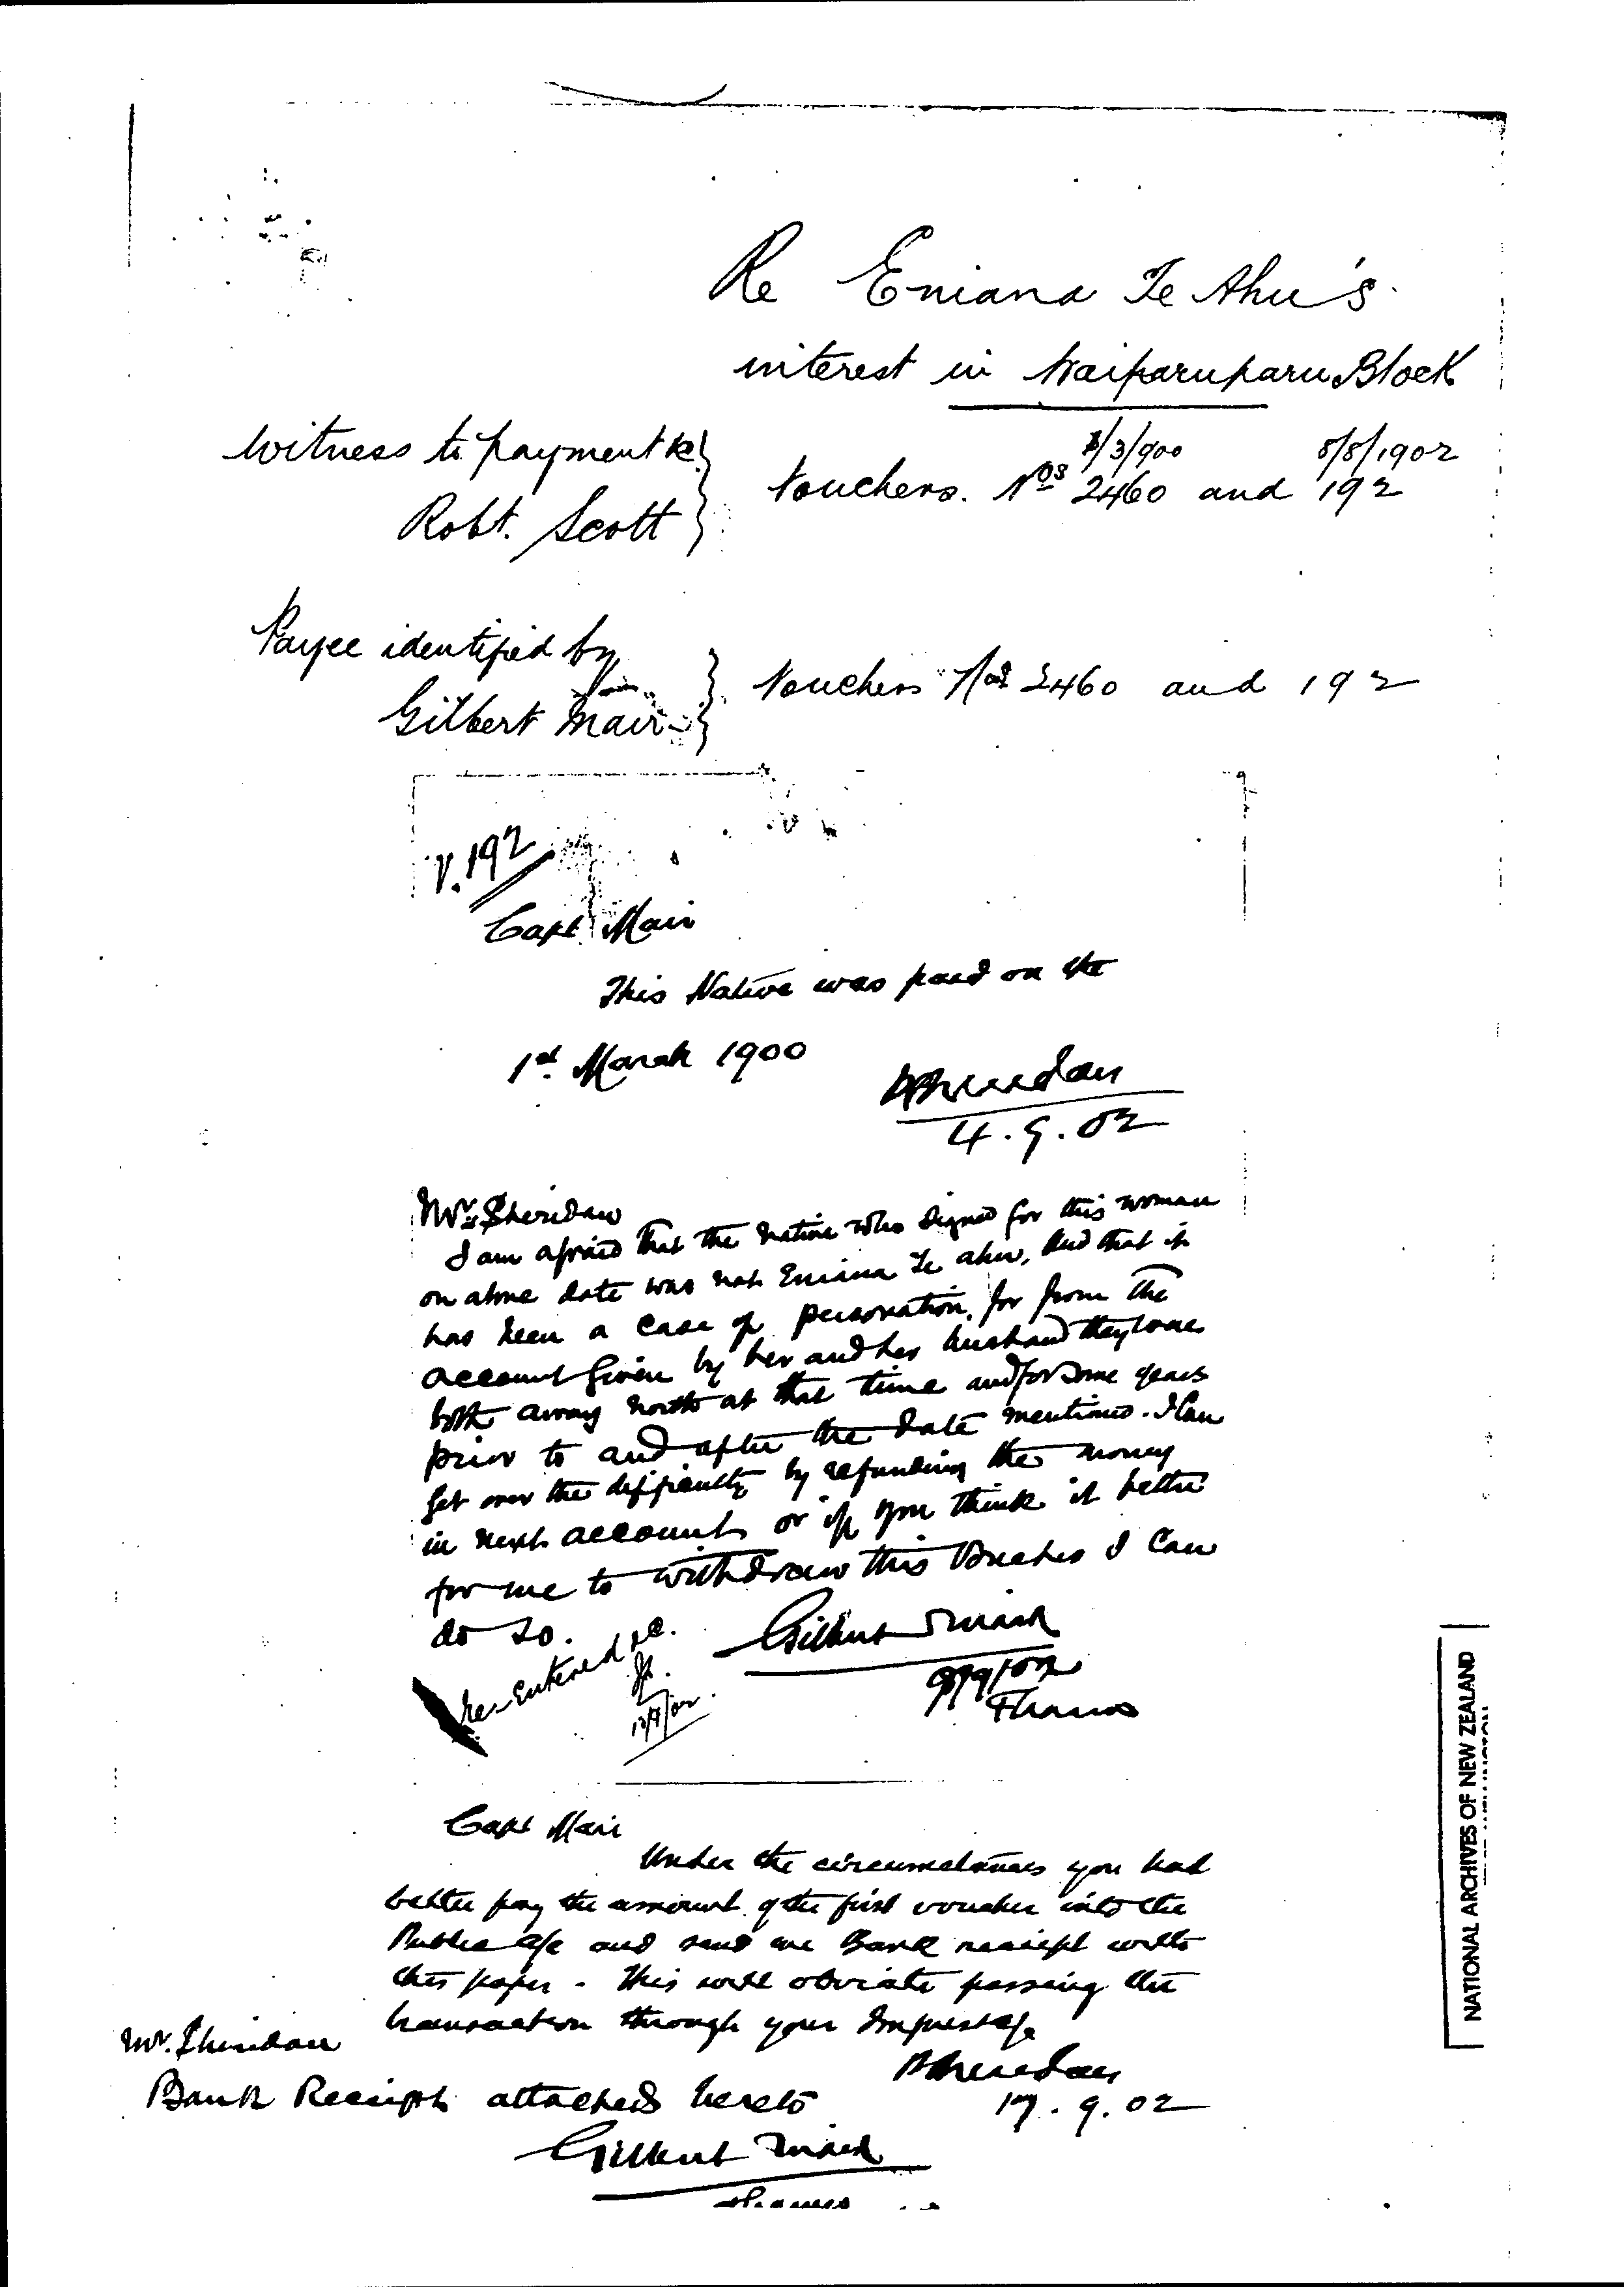 Re Eniana Te Ahu's
interest in Waiparuparu Block
Witness to payment &c
Robt. Scott
1/3/900 8/8/1902
Vouchers. Nos 2460 and 192
Payee identified by
Gilbert Mair
Vouchers Nos 2460 and 192
V. 192
Capt Mair
This Native was paid on the
1st March 1900
P Sheridan
4.9.02
Mr. Sheridan
I am afraid that the native who signed for this woman
on above date was not Eniana Te Ahu, and that it
has been a case of personation, for from the
account given by her and her husband they were
both away north at that time and for some years
prior to and after the date mentioned. I can
get over the difficulty by refunding the money
in next account or if you think it better
for me to withdraw this Voucher I can
do so.
Gilbert Mair
9/9/02
Thames
Re-entered
12/9/02.
Capt Mair
Under the circumstances you had
better pay the amount of the first voucher into the
Public a/c and send me Bank receipt with
this paper - This will obviate passing the
transaction through your Imprest a/c
P Sheridan
17.9.02
Mr. Sheridan
Bank Receipt attached hereto
Gilbert Mair
Thames
NATIONAL ARCHIVES OF NEW ZEALAND